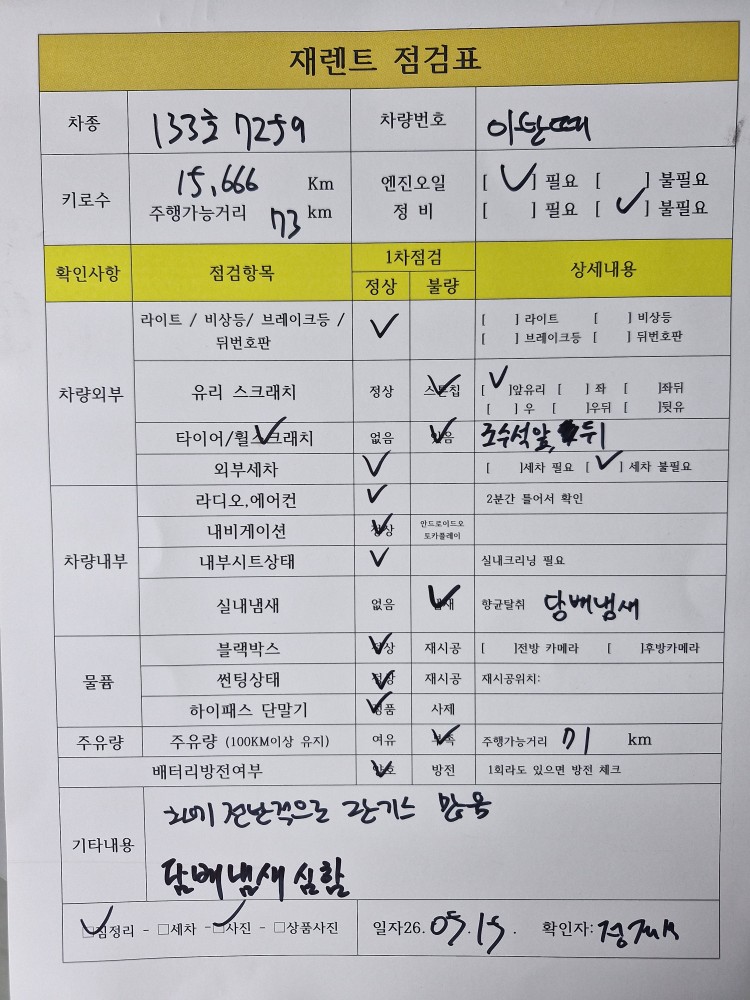 재렌트 점검표
차종 133호 7259 차량번호 아반떼
키로수 15,666 Km 엔진오일 [ ✓ ] 필요 [ ] 불필요
주행가능거리 73 km 정 비 [ ] 필요 [ ✓ ] 불필요
확인사항 점검항목 1차점검 상세내용
정상 불량
차량외부 라이트 / 비상등/ 브레이크등 / ✓ [ ] 라이트 [ ] 비상등
뒤번호판 [ ] 브레이크등 [ ] 뒤번호판
유리 스크래치 정상 스톤칩 ✓ [ ✓ ]앞유리 [ ] 좌 [ ]좌뒤
[ ] 우 [ ]우뒤 [ ]뒷유
타이어/휠스크래치 ✓ 없음 있음 ✓ 조수석앞, 뒤
외부세차 ✓ [ ]세차 필요 [ ✓ ] 세차 불필요
차량내부 라디오,에어컨 ✓ 2분간 틀어서 확인
내비게이션 정상 ✓ 안드로이드오
토카플레이
내부시트상태 ✓ 실내크리닝 필요
실내냄새 없음 냄새 ✓ 향균탈취 담배냄새
물품 블랙박스 정상 ✓ 재시공 [ ]전방 카메라 [ ]후방카메라
썬팅상태 정상 ✓ 재시공 재시공위치:
하이패스 단말기 정품 ✓ 사제
주유량 주유량 (100KM이상 유지) 여유 부족 ✓ 주행가능거리 71 km
배터리방전여부 양호 ✓ 방전 1회라도 있으면 방전 체크
기타내용 전반적으로 잔기스 많음
담배냄새 심함
☑짐정리 - □세차 - ☑사진 - □상품사진 일자26. 05. 15. 확인자: